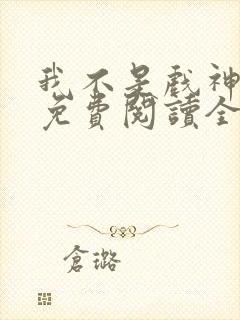 我不是戲神
免費閱讀全
倉璐